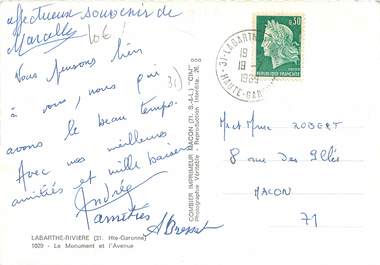 affectueux souvenir de
Marcelle
10€
Vous pensons bien
à vous, nous qui
avons le beau temps.
Avec nos meilleures
amitiés et mille baisers
Andrée
A Bresset
31)
LABARTHE-RIVIERE (31. Hte-Garonne)
1029 - Le Monument et l'Avenue
COMBIER IMPRIMEUR MACON (71. S.-&-L.) "CIM"
Photographie Véritable - Reproduction Interdite.
31-LABARTHE
19
19 -
1969
HAUTE-GAR
0,30
REPUBLIQUE FRANÇAISE
Mr et Mme ROBERT
8 rue des Illés
MACON
71